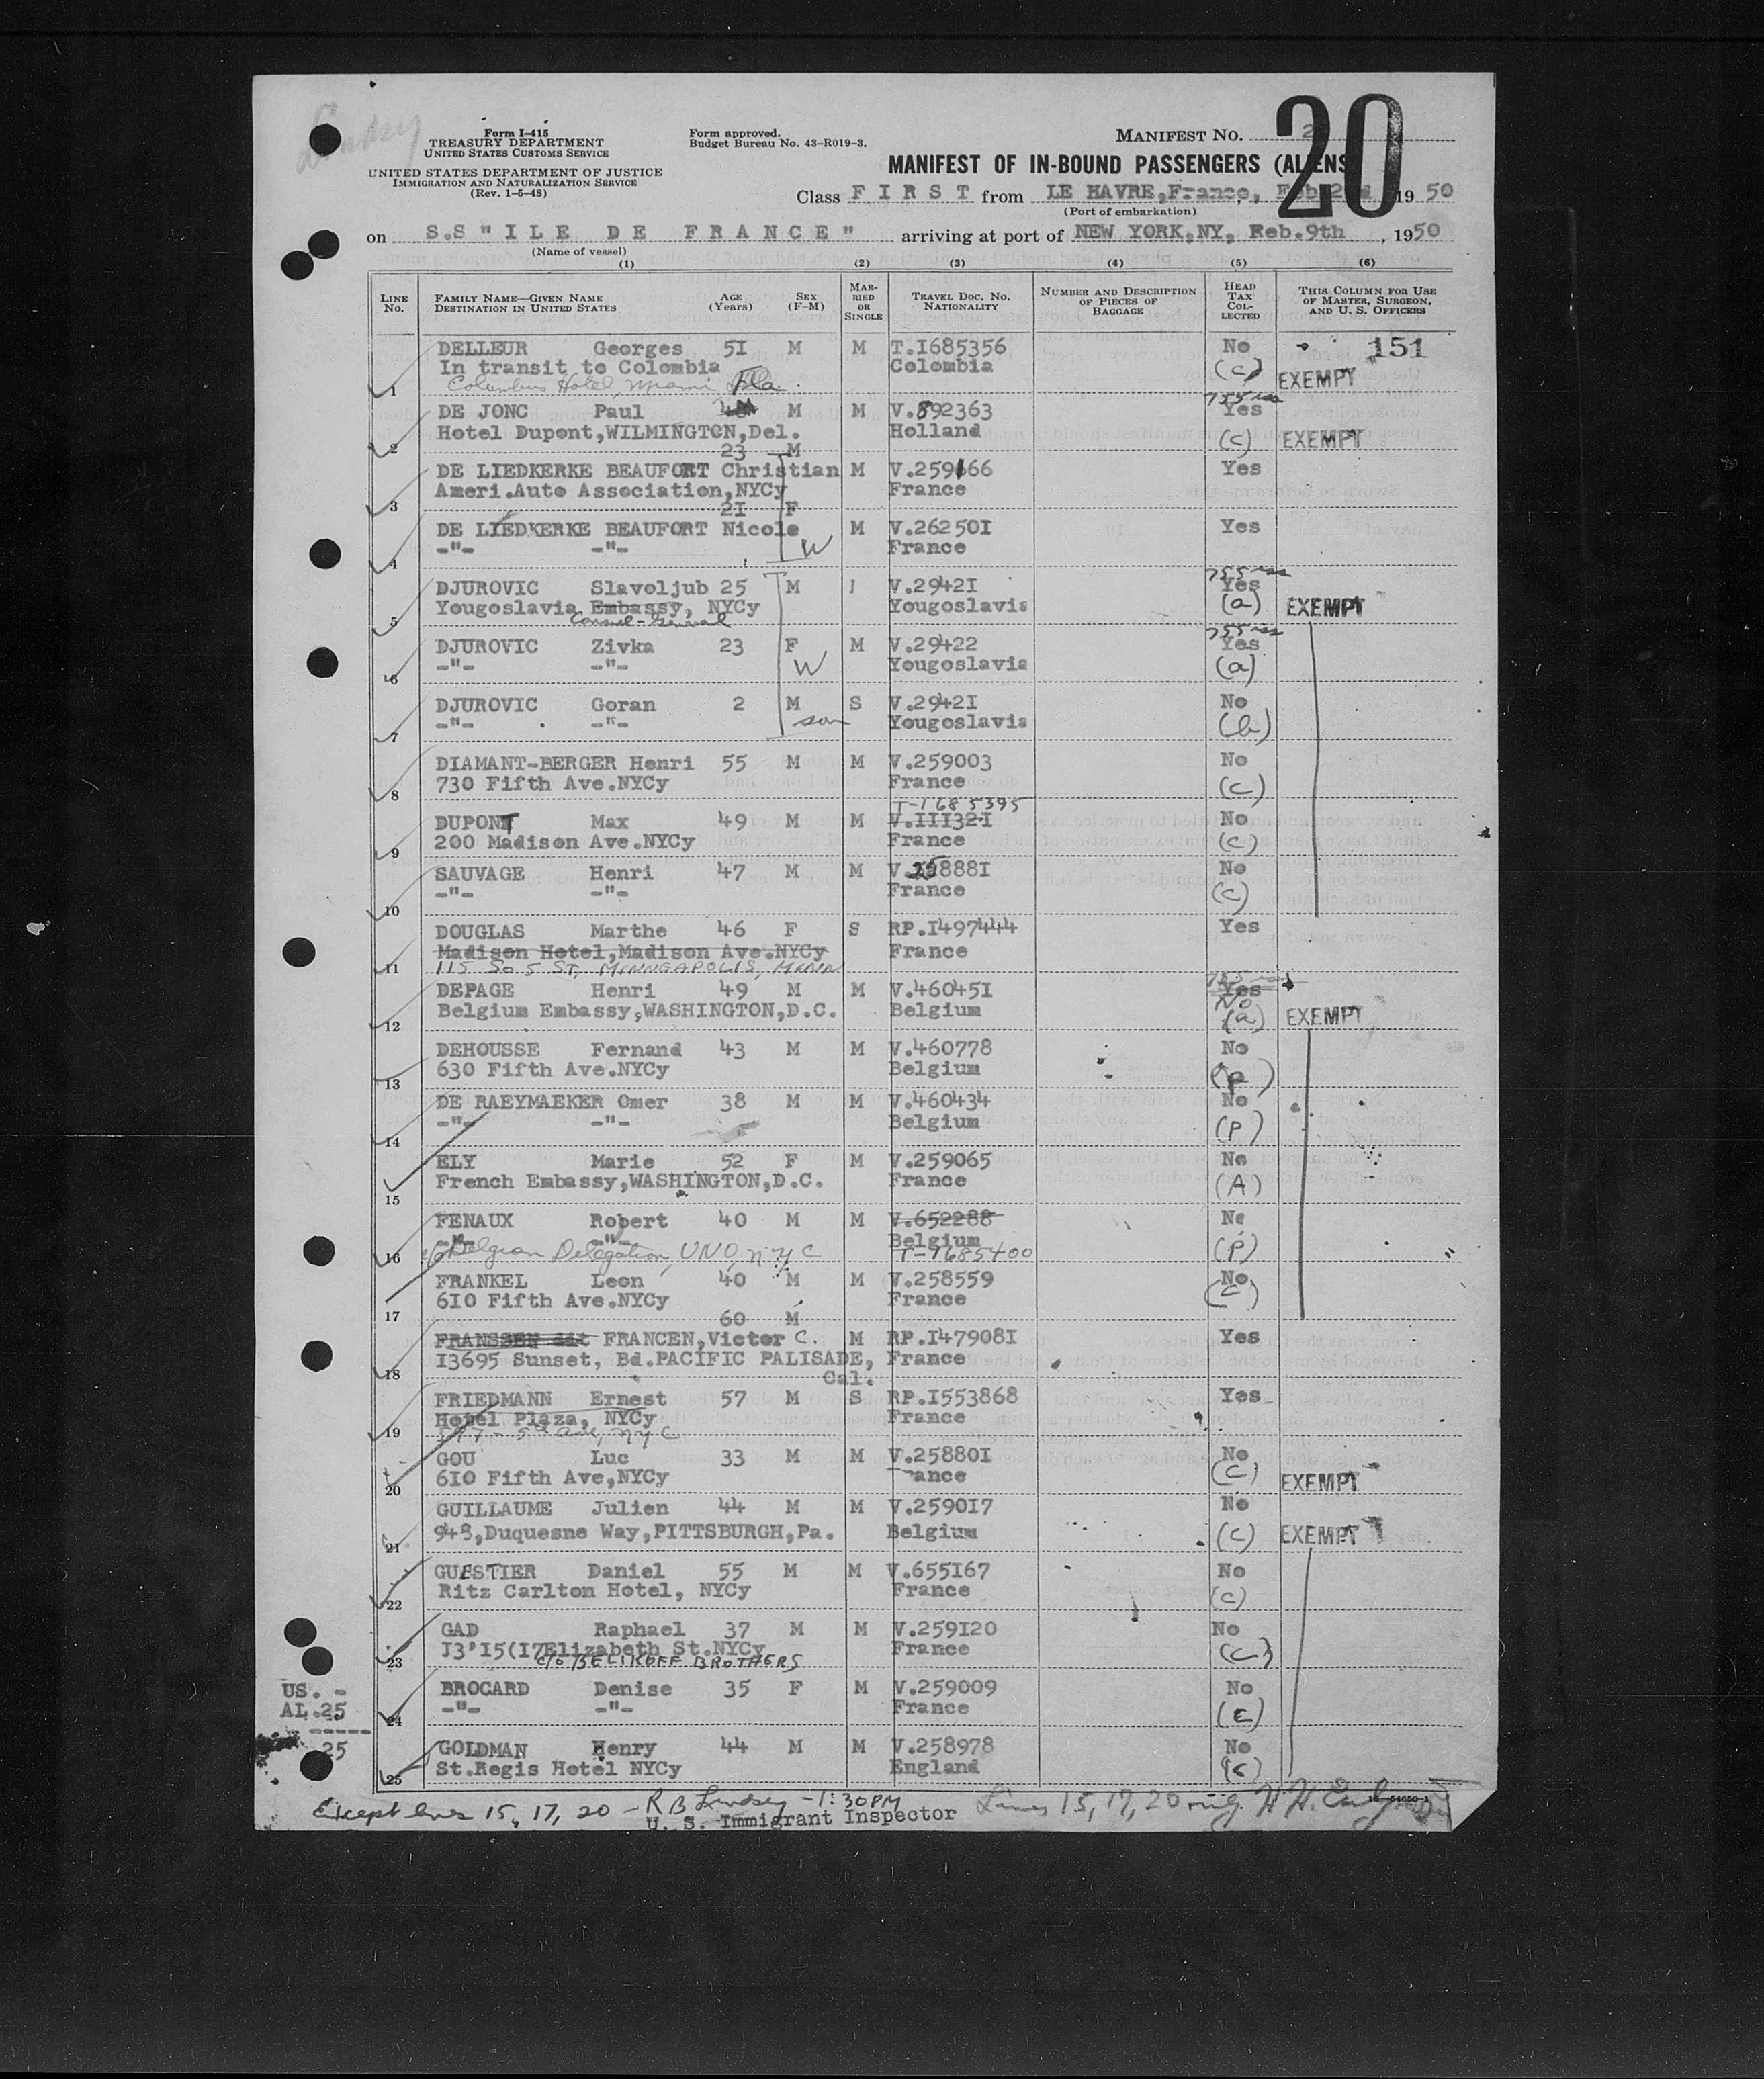 Lindsey
Form I-415
TREASURY DEPARTMENT
UNITED STATES CUSTOMS SERVICE
UNITED STATES DEPARTMENT OF JUSTICE
IMMIGRATION AND NATURALIZATION SERVICE
(Rev. 1-5-48)
Form approved.
Budget Bureau No. 43-R019-3.
MANIFEST NO. 2
20
MANIFEST OF IN-BOUND PASSENGERS (ALIENS
Class F I R S T from LE HAVRE,France, Feb.2nd 19 50
(Port of embarkation)
on S.S "I L E D E F R A N C E" arriving at port of NEW YORK,NY, Feb.9th , 1950
(Name of vessel)
(1) (2) (3) (4) (5) (6)
LINE No. FAMILY NAME—GIVEN NAME DESTINATION IN UNITED STATES AGE (Years) SEX (F-M) MARRIED OR SINGLE TRAVEL DOC. NO. NATIONALITY NUMBER AND DESCRIPTION OF PIECES OF BAGGAGE HEAD TAX COLLECTED THIS COLUMN FOR USE OF MASTER, SURGEON, AND U. S. OFFICERS
DELLEUR Georges 5I M M T.I685356 No 151
In transit to Colombia Colombia (c) EXEMPT
1 Columbus Hotel, Miami Fla.
DE JONC Paul M M V.892363 Yes
Hotel Dupont,WILMINGTON,Del. Holland (c) EXEMPT
2 23 M
DE LIEDKERKE BEAUFORT Christian M V.259166 Yes
Ameri.Auto Association,NYCy France
3 2I F
DE LIEDKERKE BEAUFORT Nicole M V.26250I Yes
-"- -"- W France
4
DJUROVIC Slavoljub 25 M V.2942I Yes
Yougoslavia Embassy, NYCy Yougoslavis (a) EXEMPT
5 Consul-General
DJUROVIC Zivka 23 F M V.29422 Yes
-"- -"- W Yougoslavia (a)
6
DJUROVIC Goran 2 M S V.2942I No
-"- -"- son Yougoslavia (b)
7
DIAMANT-BERGER Henri 55 M M V.259003 No
730 Fifth Ave.NYCy France (c)
8 T-1685395
DUPONT Max 49 M M V.III32I No
200 Madison Ave.NYCy France (c)
9
SAUVAGE Henri 47 M M V.25888I No
-"- -"- France (c)
10
DOUGLAS Marthe 46 F S RP.I497444 Yes
Madison Hotel,Madison Ave.NYCy France
11 115 So 5 ST, MINNEAPOLIS, MINN
DEPAGE Henri 49 M M V.46045I Yes No
Belgium Embassy,WASHINGTON,D.C. Belgium (a) EXEMPT
12
DEHOUSSE Fernand 43 M M V.460778 No
630 Fifth Ave.NYCy Belgium (p)
13
DE RAEYMAEKER Omer 38 M M V.460434 No
-"- -"- Belgium (p)
14
ELY Marie 52 F M V.259065 No
French Embassy,WASHINGTON,D.C. France (A)
15
FENAUX Robert 40 M M V.652288 No
-"- -"- Belgium (p)
16 c/o Belgian Delegation, UNO, NYC T-1685400
FRANKEL Leon 40 M M V.258559 No
6I0 Fifth Ave.NYCy France (c)
17 60 M
FRANSSEN dit FRANCEN,Victor C. M RP.I47908I Yes
I3695 Sunset, Bd.PACIFIC PALISADE, France
18 Cal.
FRIEDMANN Ernest 57 M S RP.I553868 Yes
Hotel Plaza, NYCy France
19 5th Ave, NYC
GOU Luc 33 M M V.25880I No
6I0 Fifth Ave,NYCy ance (c) EXEMPT
20
GUILLAUME Julien 44 M M V.2590I7 No
948,Duquesne Way,PITTSBURGH,Pa. Belgium (c) EXEMPT
21
GUESTIER Daniel 55 M M V.655I67 No
Ritz Carlton Hotel, NYCy France (c)
22
GAD Raphael 37 M M V.259I20 No
I3'I5(I7Elizabeth St.NYCy France (c)
23 c/o BELIKOFF BROTHERS
BROCARD Denise 35 F M V.259009 No
-"- -"- France (E)
24
GOLDMAN Henry 44 M M V.258978 No
St.Regis Hotel NYCy England (c)
25
US. -
AL.25
-----
25
Except lines 15, 17, 20 - R B Lindsey - 1:30PM
U. S. Immigrant Inspector
Lines 15, 17, 20 H. H.